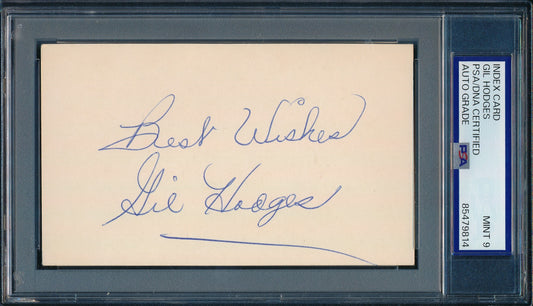 Best Wishes
Gil Hodges
INDEX CARD
GIL HODGES
PSA/DNA CERTIFIED
AUTO GRADE
PSA
MINT 9
85479814